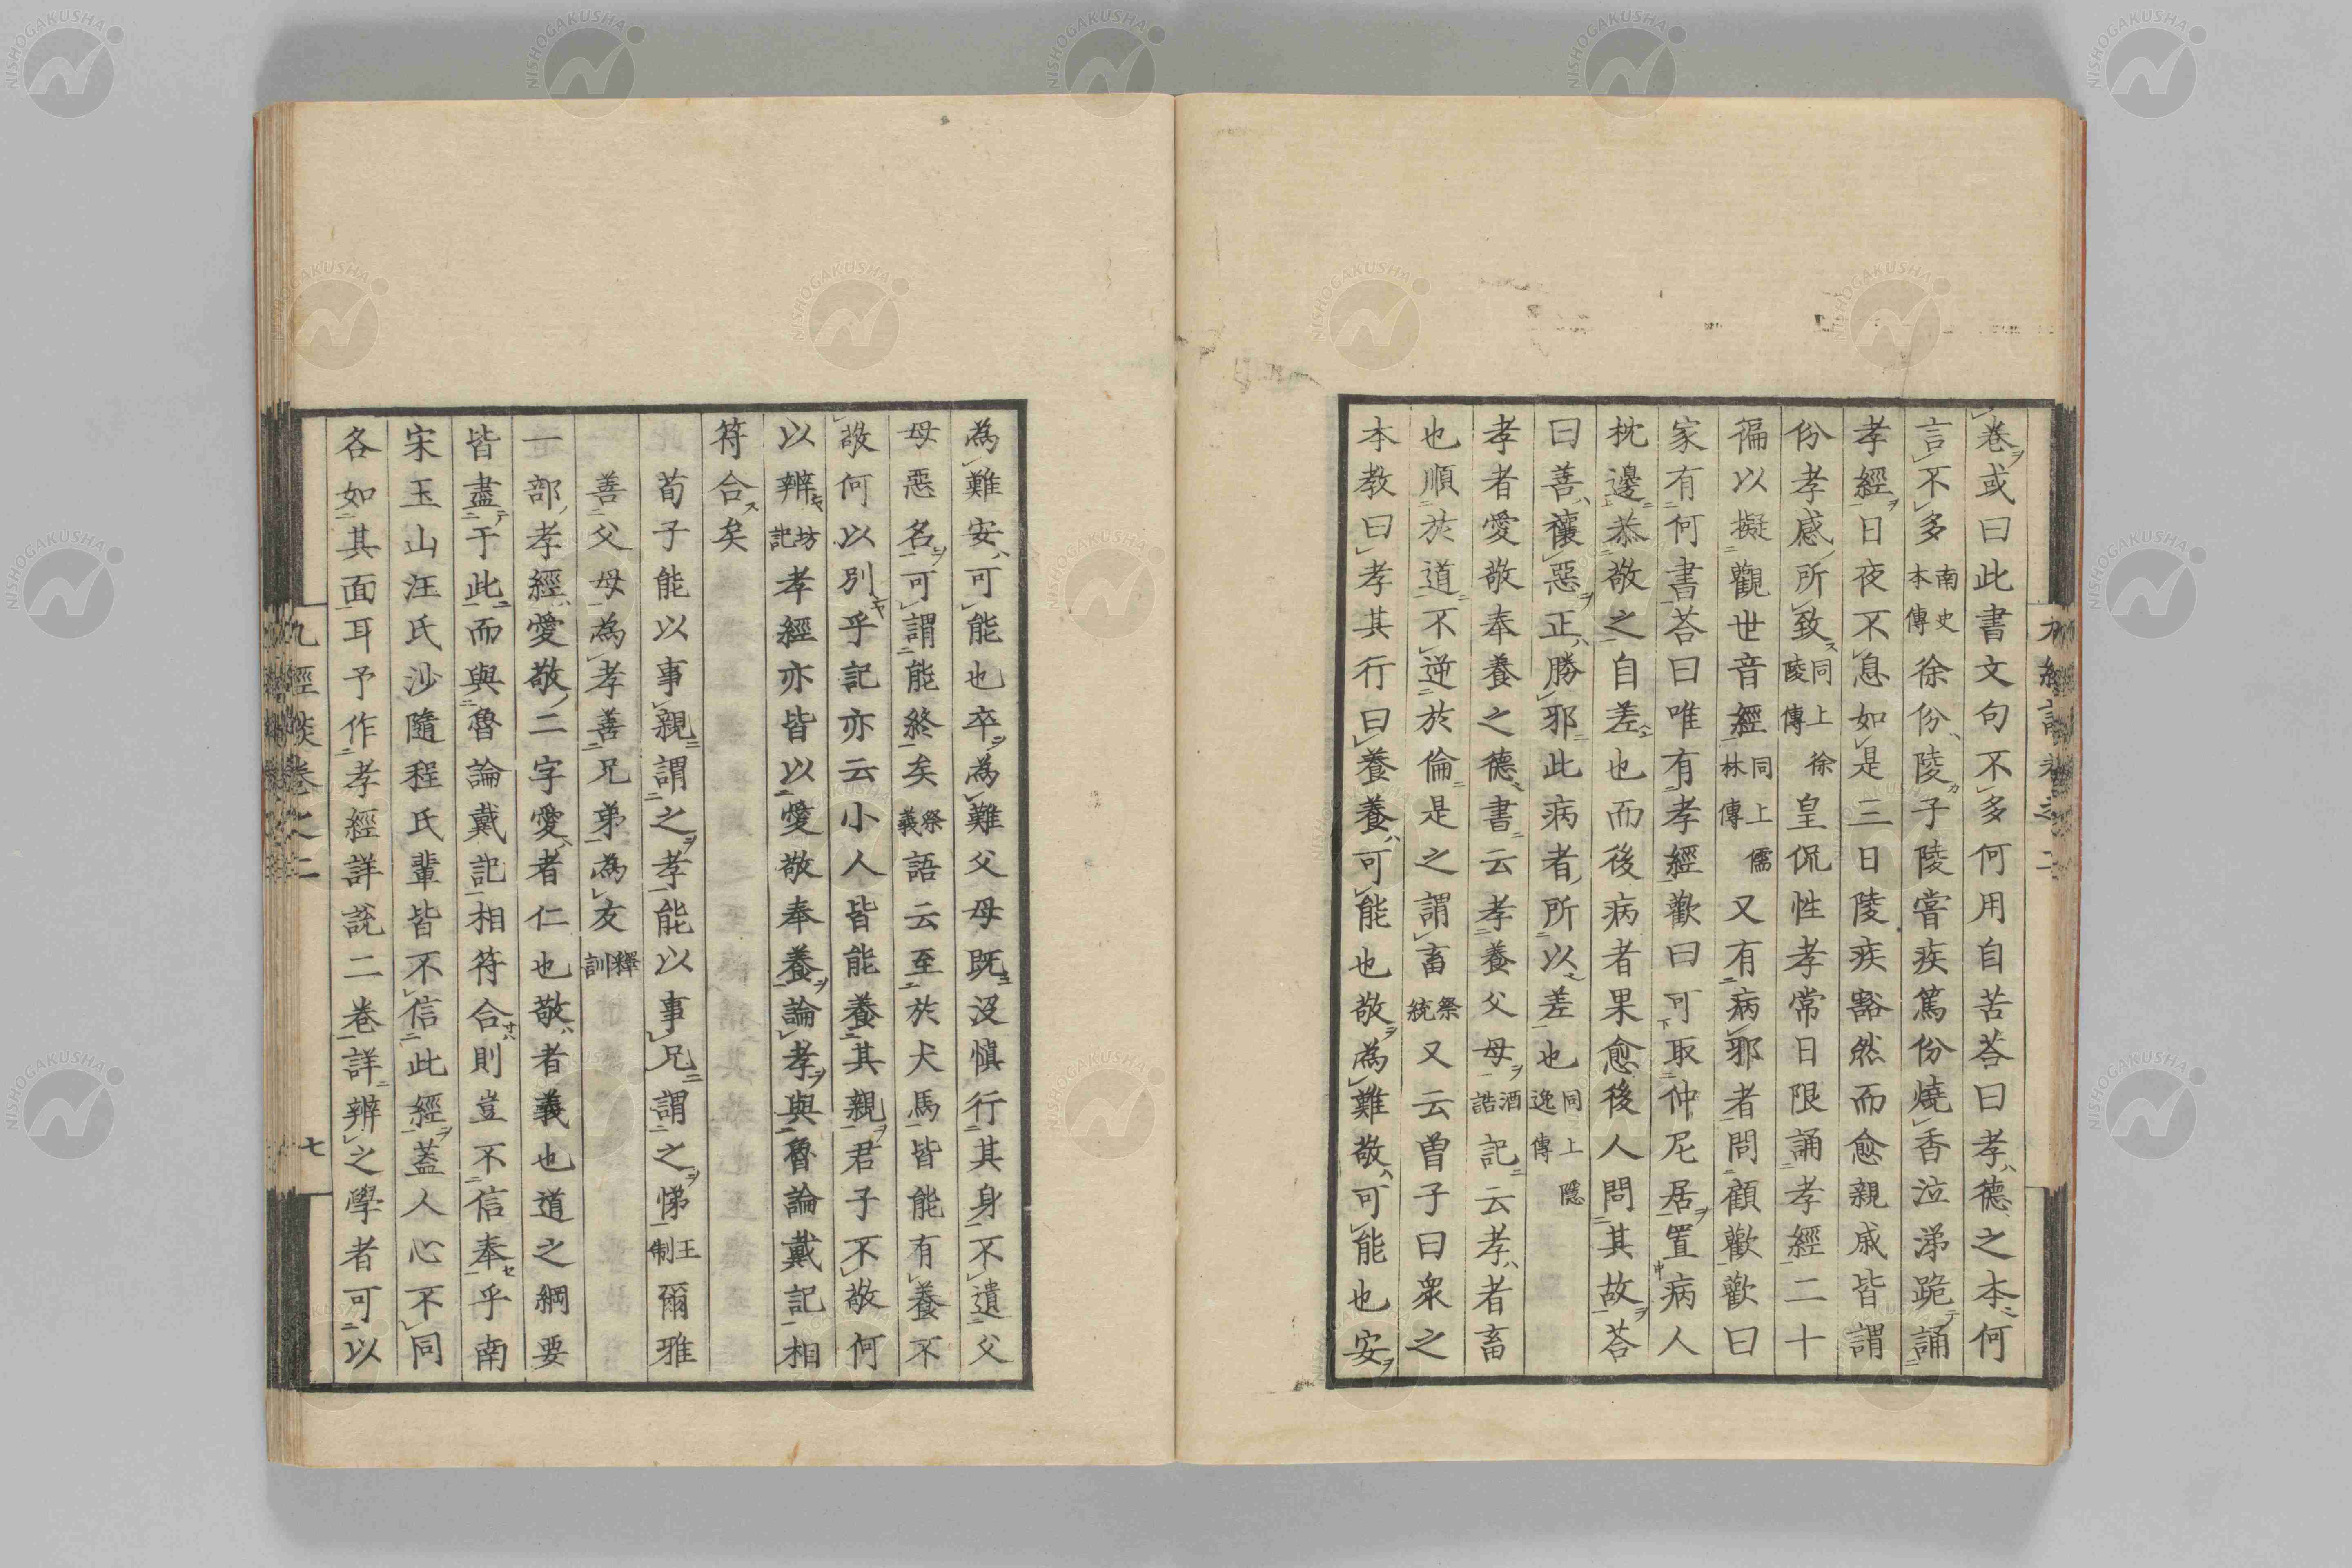 卷或曰此書文句不多何用自苦荅曰孝德之本何
言不多南史本傳徐份陵子陵嘗疾篤份燒香泣涕跪誦
孝經日夜不息如是三日陵疾豁然而愈親戚皆謂
份孝感所致同上徐陵傳皇侃性孝常日限誦孝經二十
徧以擬觀世音經同上儒林傳又有病邪者問顧歡歡曰
家有何書荅曰唯有孝經歡曰可取仲尼居置病人
枕邊恭敬之自差也而後病者果愈後人問其故荅
曰善禳惡正勝邪此病者所以差也同上隱逸傳
孝者愛敬奉養之德書云孝養父母酒誥記云孝者畜
也順於道不逆於倫是之謂畜祭統又云曾子曰衆之
本教曰孝其行曰養養可能也敬為難敬可能也安
為難安可能也卒為難父母既沒慎行其身不遺父
母惡名可謂能終矣祭義語云至於犬馬皆能有養不
敬何以別乎記亦云小人皆能養其親君子不敬何
以辨坊記孝經亦皆以愛敬奉養論孝與魯論戴記相
符合矣
荀子能以事親謂之孝能以事兄謂之悌王制爾雅
善父母為孝善兄弟為友釋訓
一部孝經愛敬二字愛者仁也敬者義也道之綱要
皆盡于此而與魯論戴記相符合則豈不信奉乎南
宋玉山汪氏沙隨程氏輩皆不信此經蓋人心不同
各如其面耳予作孝經詳說二卷詳辨之學者可以
九經談卷之二
七